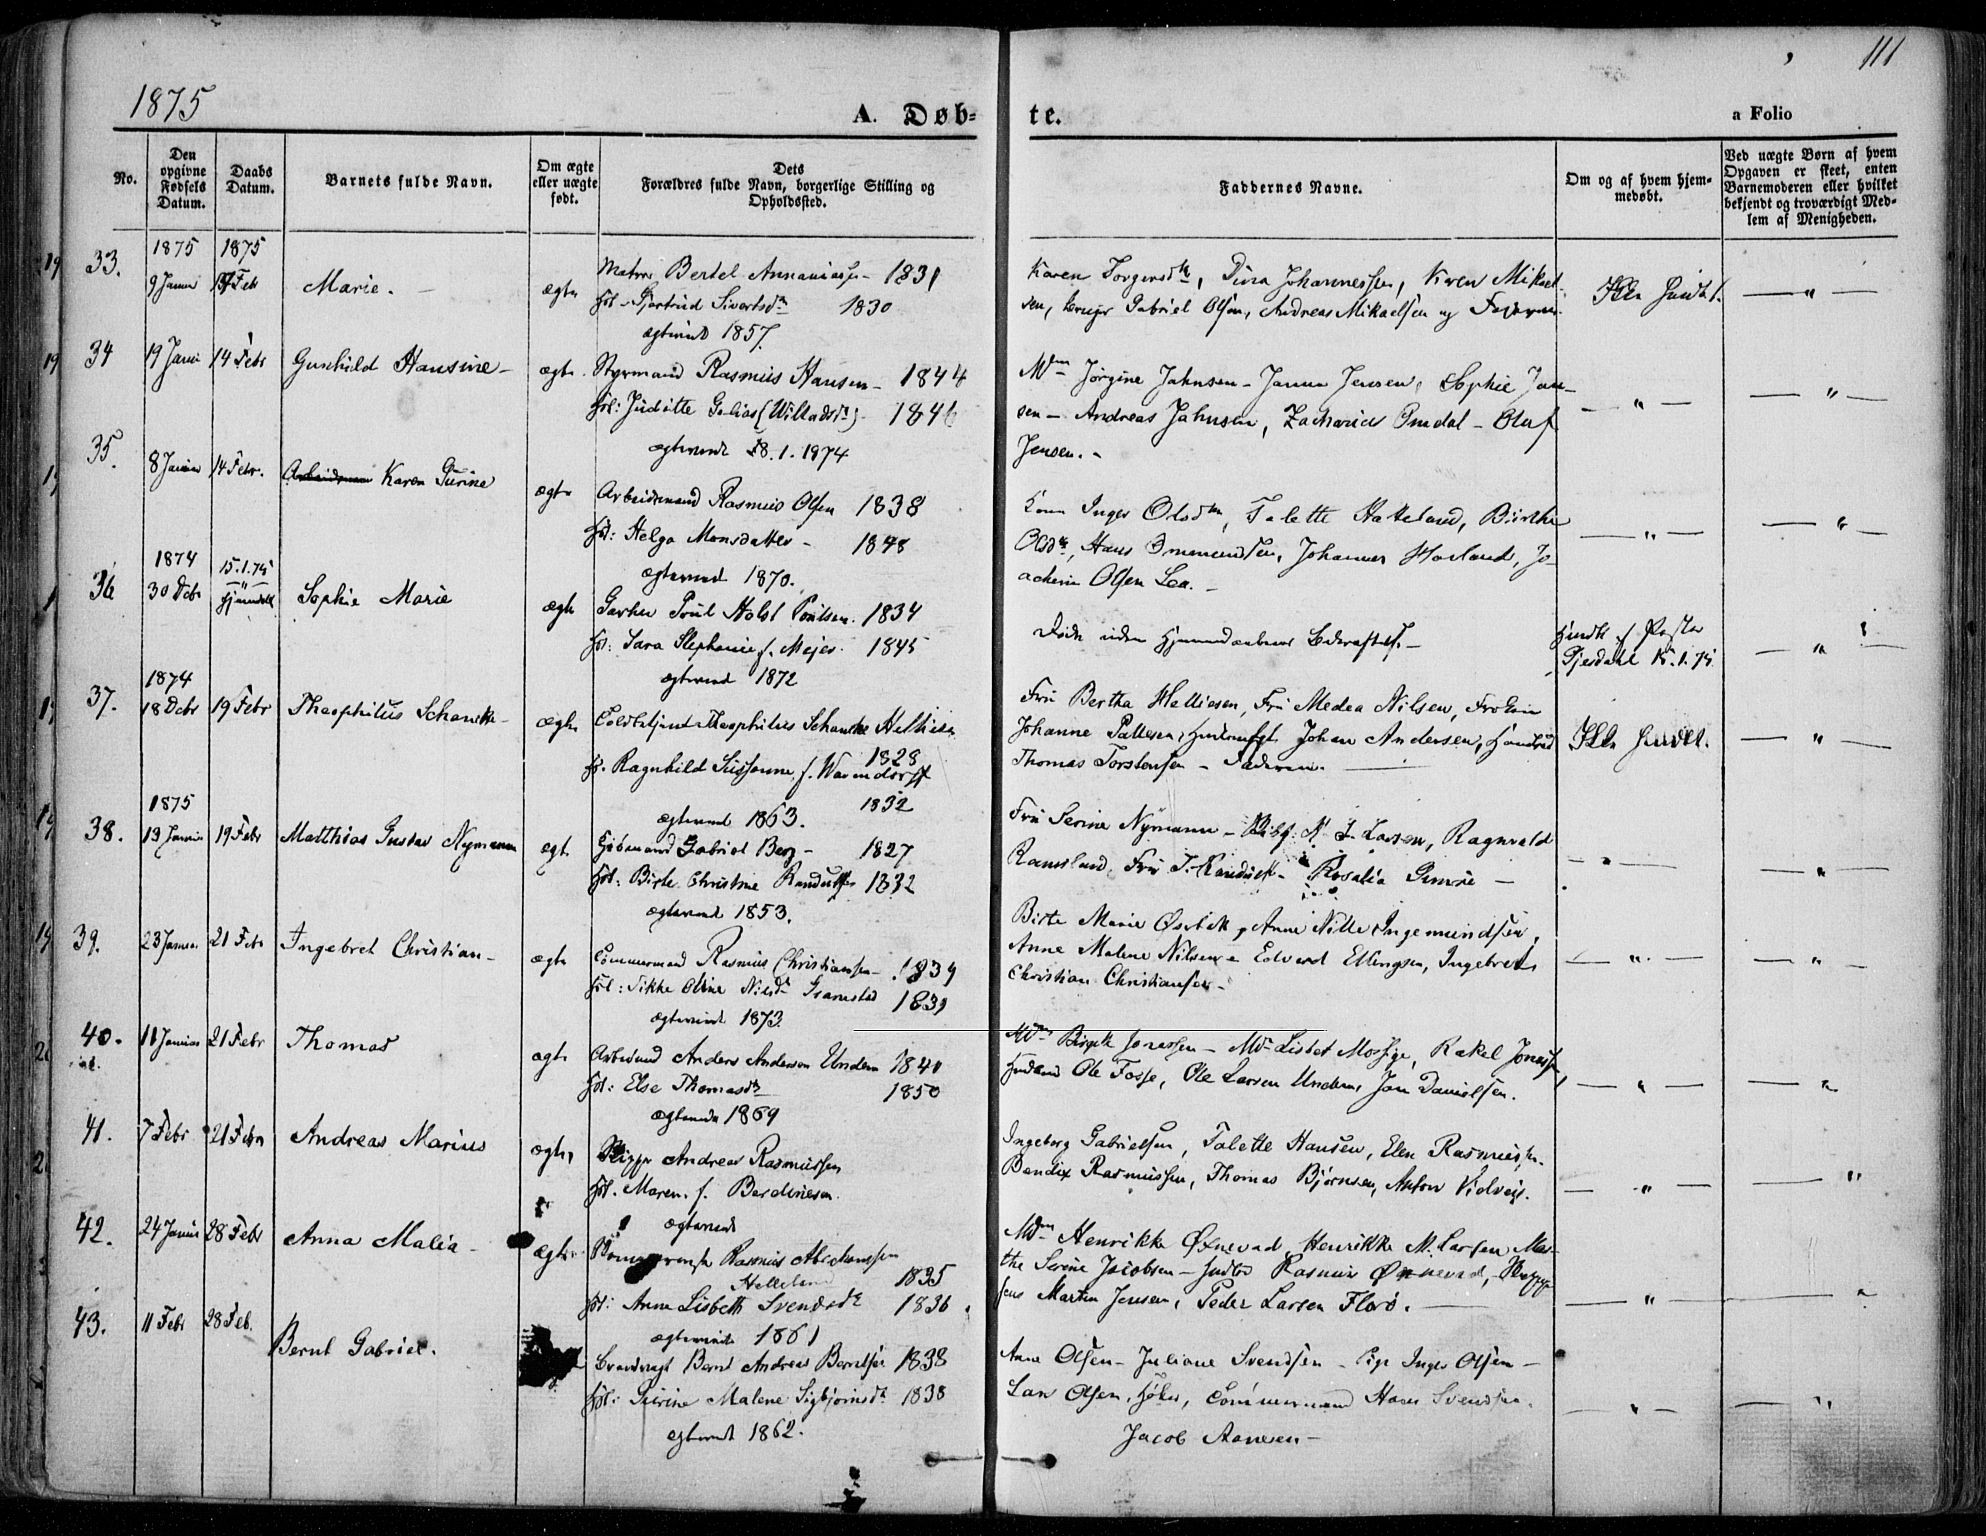 111
1875
A. Døb-
te.
a Folio
No.
Den opgivne Fødsels Datum.
Daabs Datum.
Barnets fulde Navn.
Om ægte eller uægte født.
Dets Forældres fulde Navn, borgerlige Stilling og Opholdssted.
Faddernes Navne.
Om og af hvem hjem-
medøbt.
Ved uægte Børn af hvem
Opgaven er skeet, enten
Barnemoderen eller hvilket
bekjendt og troværdigt Med-
lem af Menigheden.
33.
1875 1875
9 Janur Febr
Marie.
ægte
Matros Bertel Annaniassen 1831
Gjertrud Sivertsdr 1830
ægteviet 1857.
Karen Torgersdtr, Dina Johannessen, Karen Mikael-
sen, Gabriel Olsen, Andreas Mikaelsen og Faderen.
34 19 Janu 14 Febr Gunhild Hansine
ægte Styrmand Rasmus Hansen 1844
Hst: Judithe Golias (Willadsdr) 1846
ægteviet 18.1.1974
Mdm Jørgine Jahnsen - Janna Jensen, Sophie Jan-
sen - Andreas Jahnsen, Zacharias Omdal - Oluf
Jensen.
35. 8 Janur 14 Febr. Karen Gurine
ægte Arbeidsmand Rasmus Olsen 1838
Hst: Helga Monsdatter 1848
ægteviet 1870.
Inger Olsdtr, Talette Hatteland, Birthe
Olsdtr, Hans Ommundsen, Johannes Havland, Jo-
achim Olsen Lea.
36 1874
30 Debr 15.1.75 Sophie Marie
ægte Garver Poul Holst Poulsen 1834
Hst: Sara Stephanie f. Mejer 1845
ægteviet 1872
Døde uden Hjemmedaabens Bekræftelse
Hjmdt f Pastor
Gjesdahl 15.1.75
37. 1874
18 Debr 19 Febr Theophilus Schancke
ægte Toldbetjent Theophilus Schancke Helliesen
1828
Ragnhild Susanne f. Warendorff
1832
ægteviet 1863.
Fru Bertha Helliesen, Fru Medea Nilsen, Frøken
Johanne Pallesen, Johan Andersen,
Thomas Torstensen - Faderen.
38. 1875
13 Janur 19 Febr Matthias Gustav Nymann
ægte Gabriel Berg 1827
Hst: Birte Christine Randulff 1832
ægteviet 1853.
Fru Serine Nymann - N. J. Larsen, Ragnvald
Ramsland, Fru J. Randulff - Rosalia Gimre
39. 23 Janur 21 Febr Ingebret Christian
ægte Tømmermand Rasmus Christiansen 1834
Hst: Sikke Oline Nilsdr Granestad 1839
ægteviet 1873.
Birte Marie Østbek, Anne Nille Ingemundsen,
Anne Malene Nilsen - Edvard Ellingsen, Ingebret
Christian Christiansen
40. 11 Januar 21 Febr Thomas
ægte Arbmd Anders Andersen Undem 1840
Hst: Else Thomasdr 1850
ægteviet 1869
Mdm Birgite Jonassen - Mdm Lisbet Mossige, Rakel Jonassen,
Ole Fosse, Ole Larsen Undem, Jan Danielsen.
41. 7 Febr 21 Febr Andreas Marius
ægte Skipper Andreas Rasmussen
Hst. Maren f. Berdinesen
ægteviet
Ingeborg Gabrielsen, Talette Hansen, Elen Rasmussen
Bendix Rasmussen, Thomas Bjørnsen, Anton Vidvei.
42. 24 Janur 28 Febr Anna Malia
ægte Rasmus Abrahamsen
Helleland 1835
Hst: Anne Lisbeth Svendsdr 1836
ægteviet 1861
Mdm Henrikke Øxnevad, Henrikke M. Larsen Mar-
the Serine Jacobsen - Rasmus Øxnevad, Skipper
Martin Jensen, Peder Larsen Florø.
43. 11 Febr 28 Feb. Bernt Gabriel.
Brandvagt Bernt Andreas Berntsen 1838
Hst: Gurine Malene Sigbjørnsdr 1838
ægteviet 1862.
Anne Olsen - Juliane Svendsen - Pige Inger Olsen -
Lars Olsen, Høker, Tømmermand Hans Svendsen,
Jacob Aanesen